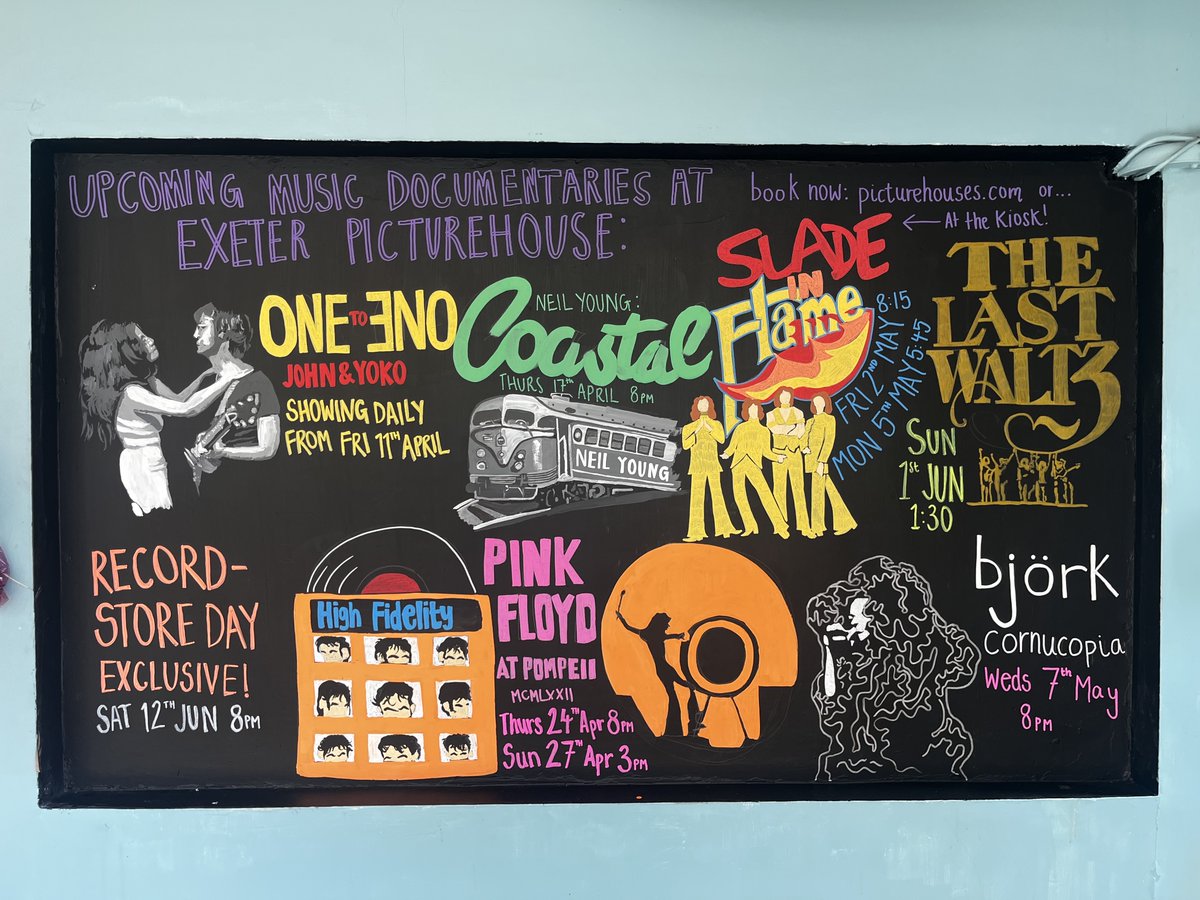 UPCOMING MUSIC DOCUMENTARIES AT
EXETER PICTUREHOUSE:
book now: picturehouses.com or...
← At the Kiosk!
ONE TO ONE
JOHN & YOKO
SHOWING DAILY
FROM FRI 11TH APRIL
NEIL YOUNG:
Coastal
THURS 17TH APRIL 8PM
NEIL YOUNG
SLADE
IN
Flame
FRI 2ND MAY 8:15
MON 5TH MAY 5:45
THE
LAST
WALTZ
SUN
1ST JUN
1:30
RECORD-
STORE DAY
EXCLUSIVE!
SAT 12TH JUN 8PM
High Fidelity
PINK
FLOYD
AT POMPEII
MCMLXXII
Thurs 24TH Apr 8PM
Sun 27TH Apr 3PM
björk
cornucopia
Weds 7th May
8PM